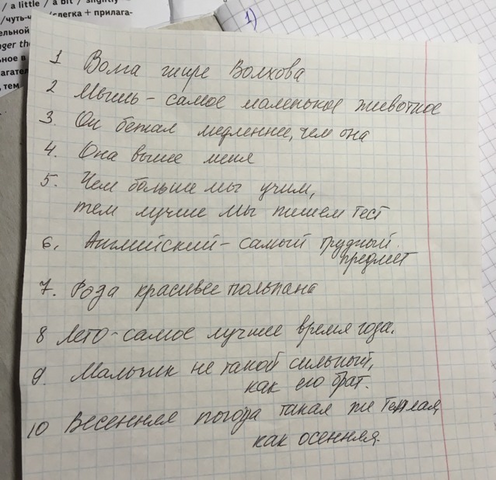 / a little / a bit / slightly
/чуть-ч /слегка + прилага-
1)
1 Волга шире Волхова
2 Мышь - самое маленькое животное
3. Он бежал медленнее, чем она
4. Она выше меня
5. Чем больше мы учим,
тем лучше мы пишем тест
6. Английский - самый трудный
предмет
7. Роза красивее тюльпана
8 Лето - самое лучшее время года.
9. Мальчик не такой сильный,
как его брат.
10 Весенняя погода такая же теплая,
как осенняя.